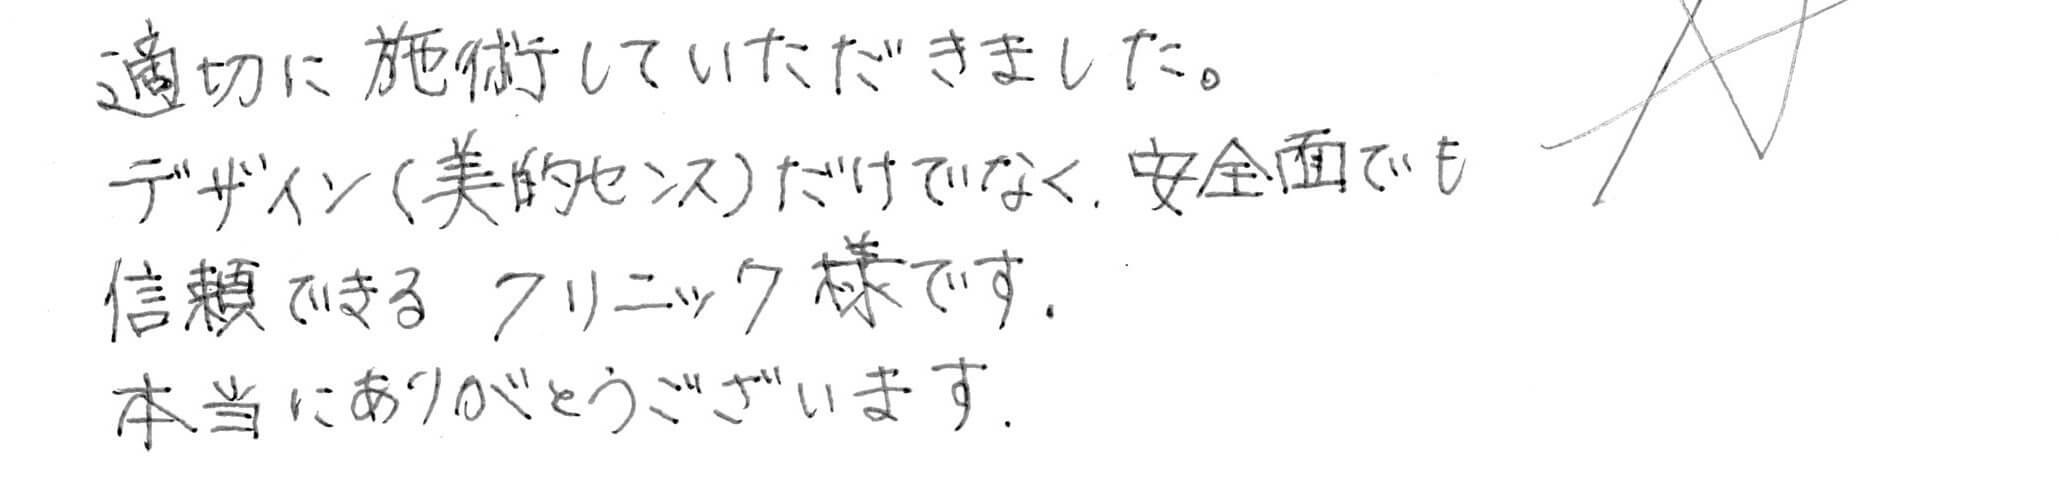 適切に施術していただきました。
デザイン(美的センス)だけでなく、安全面でも
信頼できるクリニック様です.
本当にありがとうございます.